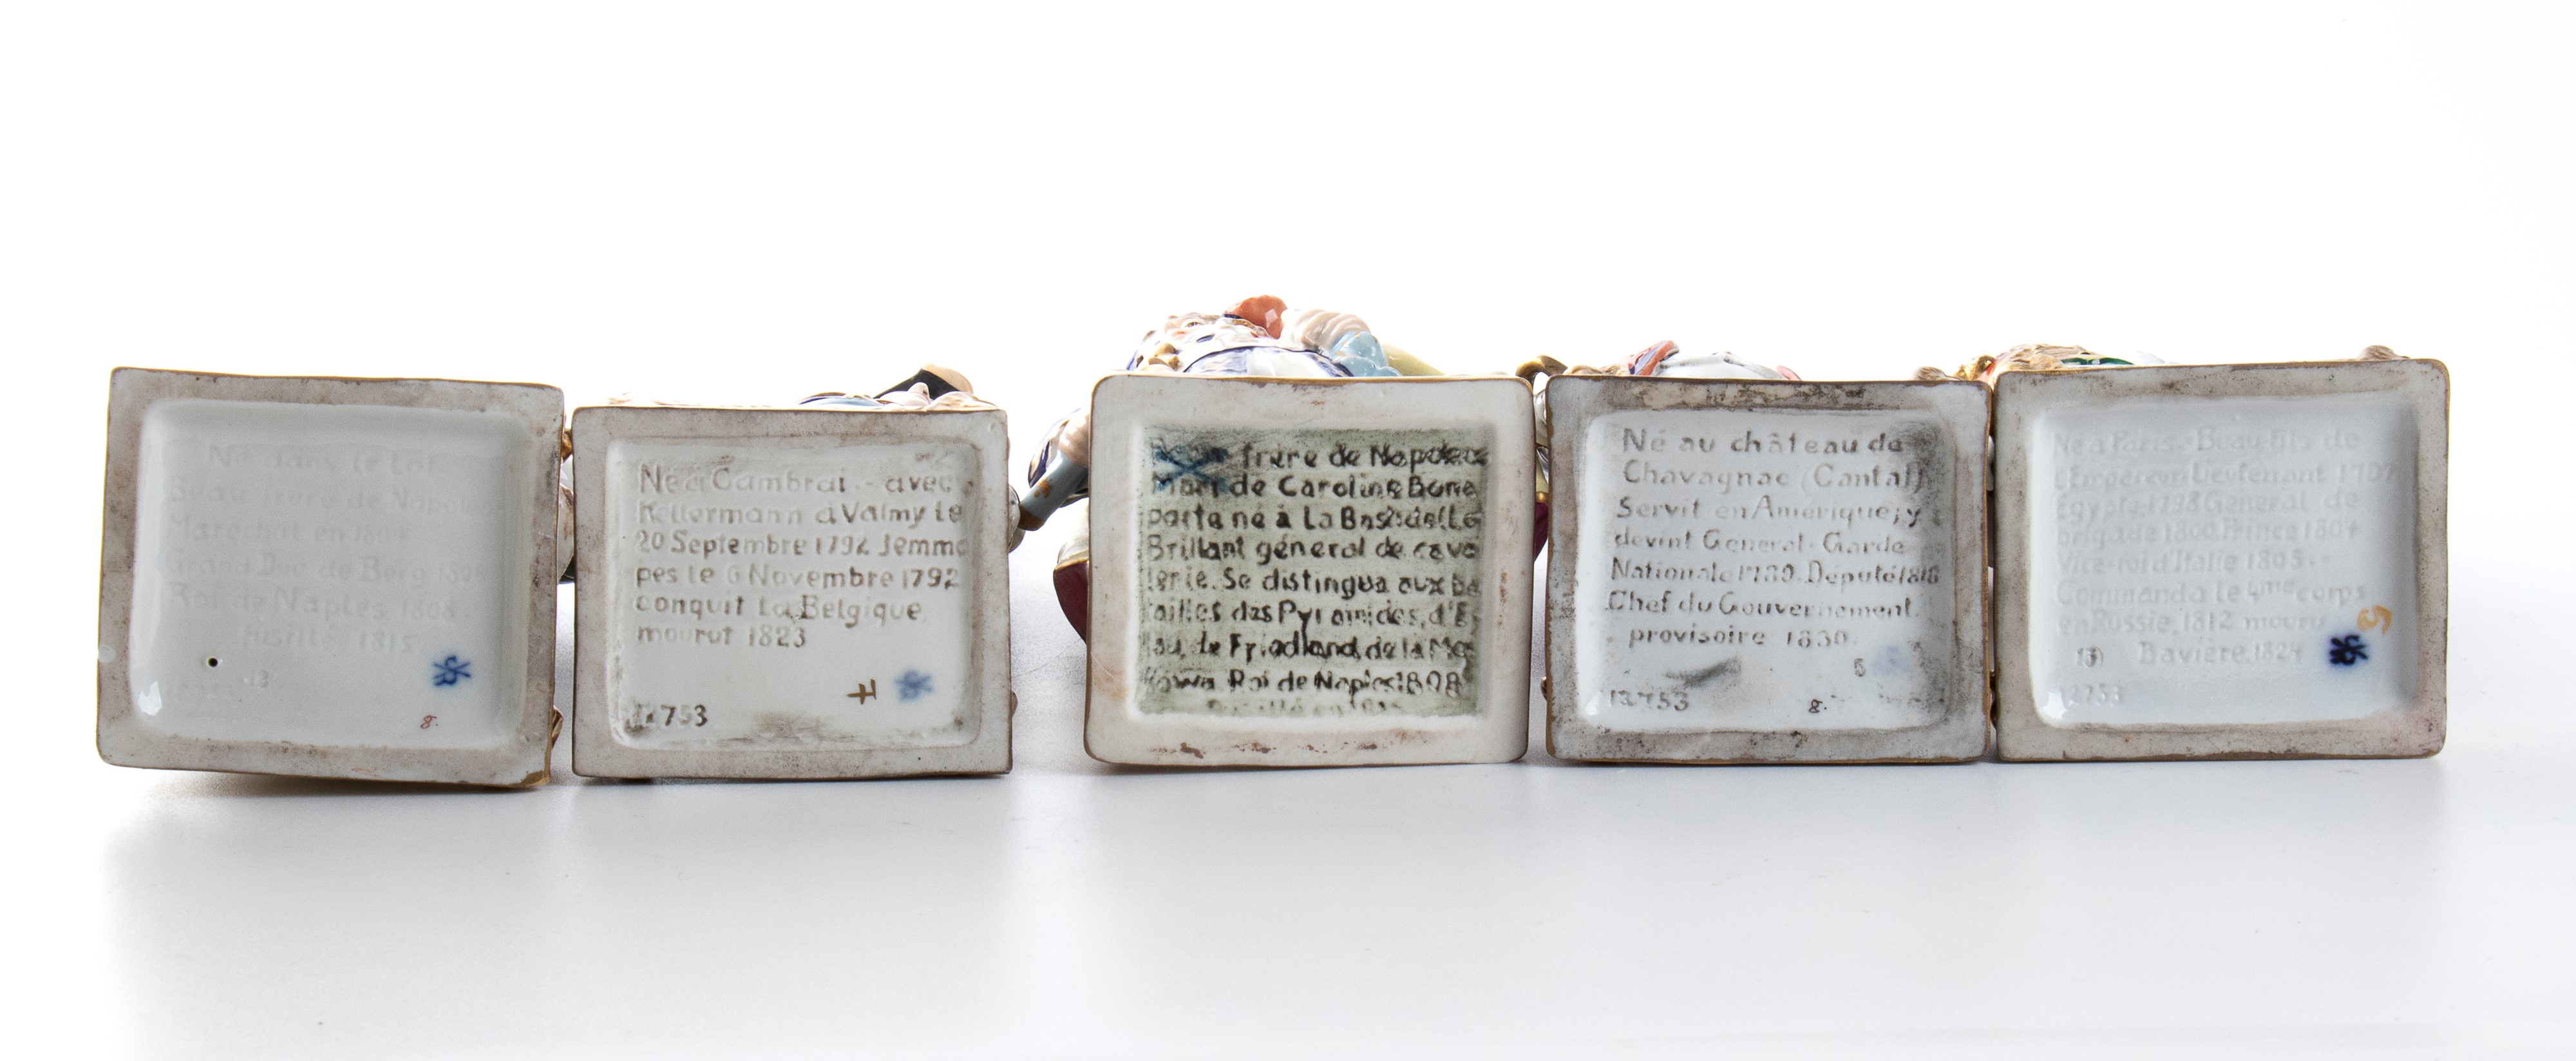 Né dans le Lot
Beau frère de Napoleon
Marechal en 1804
Grand Duc de Berg 1805
Roi de Naples 1808
fusillé 1815
13
g.
Né à Cambrai - avec
Kellermann à Valmy Le
20 Septembre 1792 Jemma
pes le 6 Novembre 1792
conquit La Belgique
mourut 1823
7
12753
frère de Napoleon
Mari de Caroline Bona
parte né à La Bastide (Lo
Brillant général de cava
lerie. Se distingua aux ba
tailles des Pyramides, d'E
lau, de Friedland, de la Mos
kowa Roi de Naples 1808
Né au château de
Chavagnac (Cantal)
Servit en Amérique, y
devint General - Garde
Nationale 1789. Deputé 1818
Chef du Gouvernement
provisoire 1830.
6
12753
g.
Né à Paris - Beau-fils de
l'Empereur Lieutenant 1797
Egypte, 1798 General de
brigade 1800. Prince 1804
Vice-roi d'Italie 1805.-
Commanda le 4me corps
en Russie, 1812 mouru
Bavière, 1824
5
12753